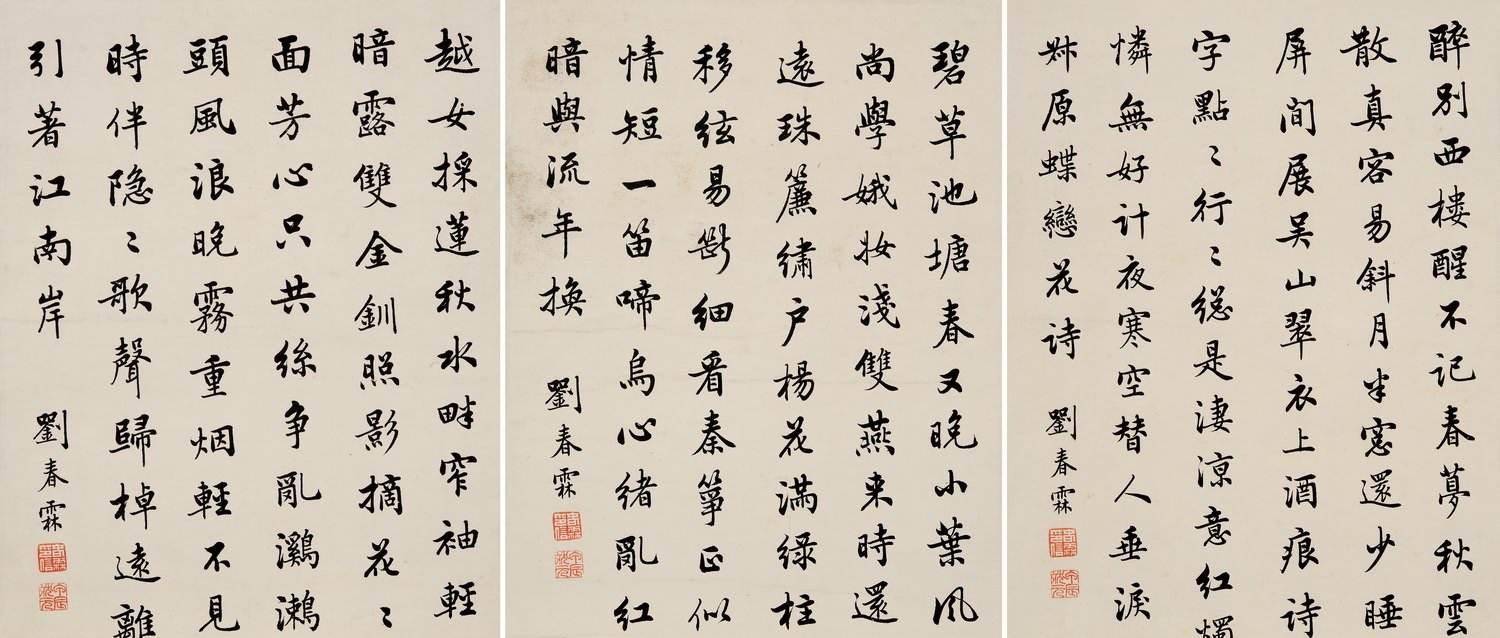 醉別西樓醒不記春夢秋雲
散真容易斜月半窓還少睡
屏間展吴山翠衣上酒痕詩
字點〻行〻總是淒涼意紅燭
憐無好計夜寒空替人垂淚
叔原蝶戀花詩 劉春霖
碧草池塘春又晚小葉風
尚學娥妝淺雙燕来時還
遠珠簾繡户楊花滿緑柱
移絃易斷細看秦箏正似
情短一笛啼烏心緒亂紅
暗與流年換 劉春霖
越女採蓮秋水畔窄袖輕
暗露雙金釧照影摘花〻
面芳心只共絲争亂鸂鶒
頭風浪晚霧重烟輕不見
時伴隐〻歌聲歸棹遠離
引著江南岸 劉春霖